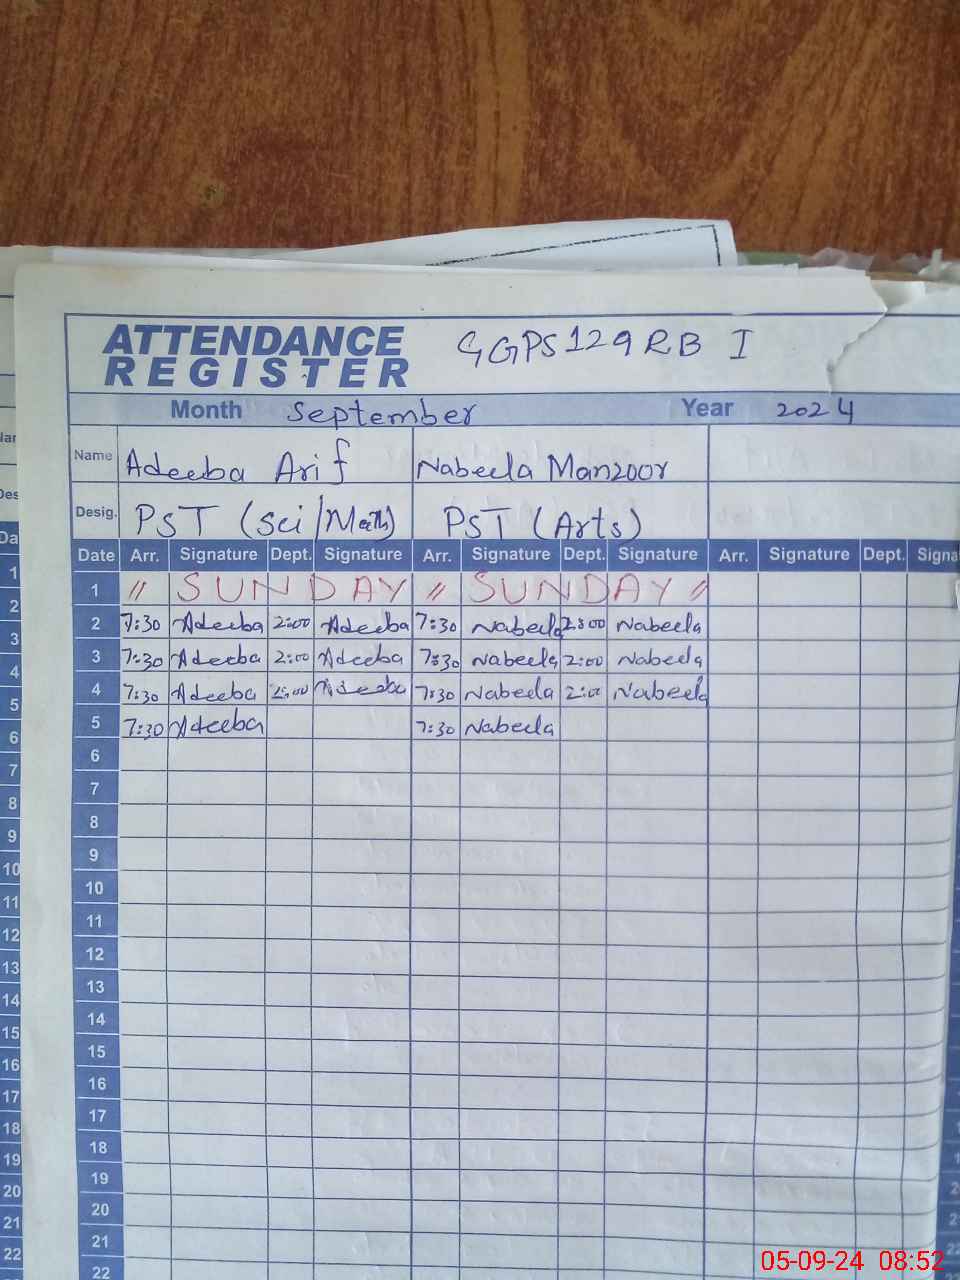 ATTENDANCE REGISTER GGPS 129 RB I
Month September Year 2024
Name Adeeba Arif Nabeela Manzoor
Desig. PST (Sci/Math) PST (Arts)
Date Arr. Signature Dept. Signature Arr. Signature Dept. Signature Arr. Signature Dept. Signa
1 〃 SUNDAY 〃 SUNDAY 〃
2 7:30 Adeeba 2:00 Adeeba 7:30 Nabeela 2:00 Nabeela
3 7:30 Adeeba 2:00 Adeeba 7:30 Nabeela 2:00 Nabeela
4 7:30 Adeeba 2:00 Adeeba 7:30 Nabeela 2:00 Nabeela
5 7:30 Adeeba 7:30 Nabeela
6
7
8
9
10
11
12
13
14
15
16
17
18
19
20
21
22
05-09-24 08:52